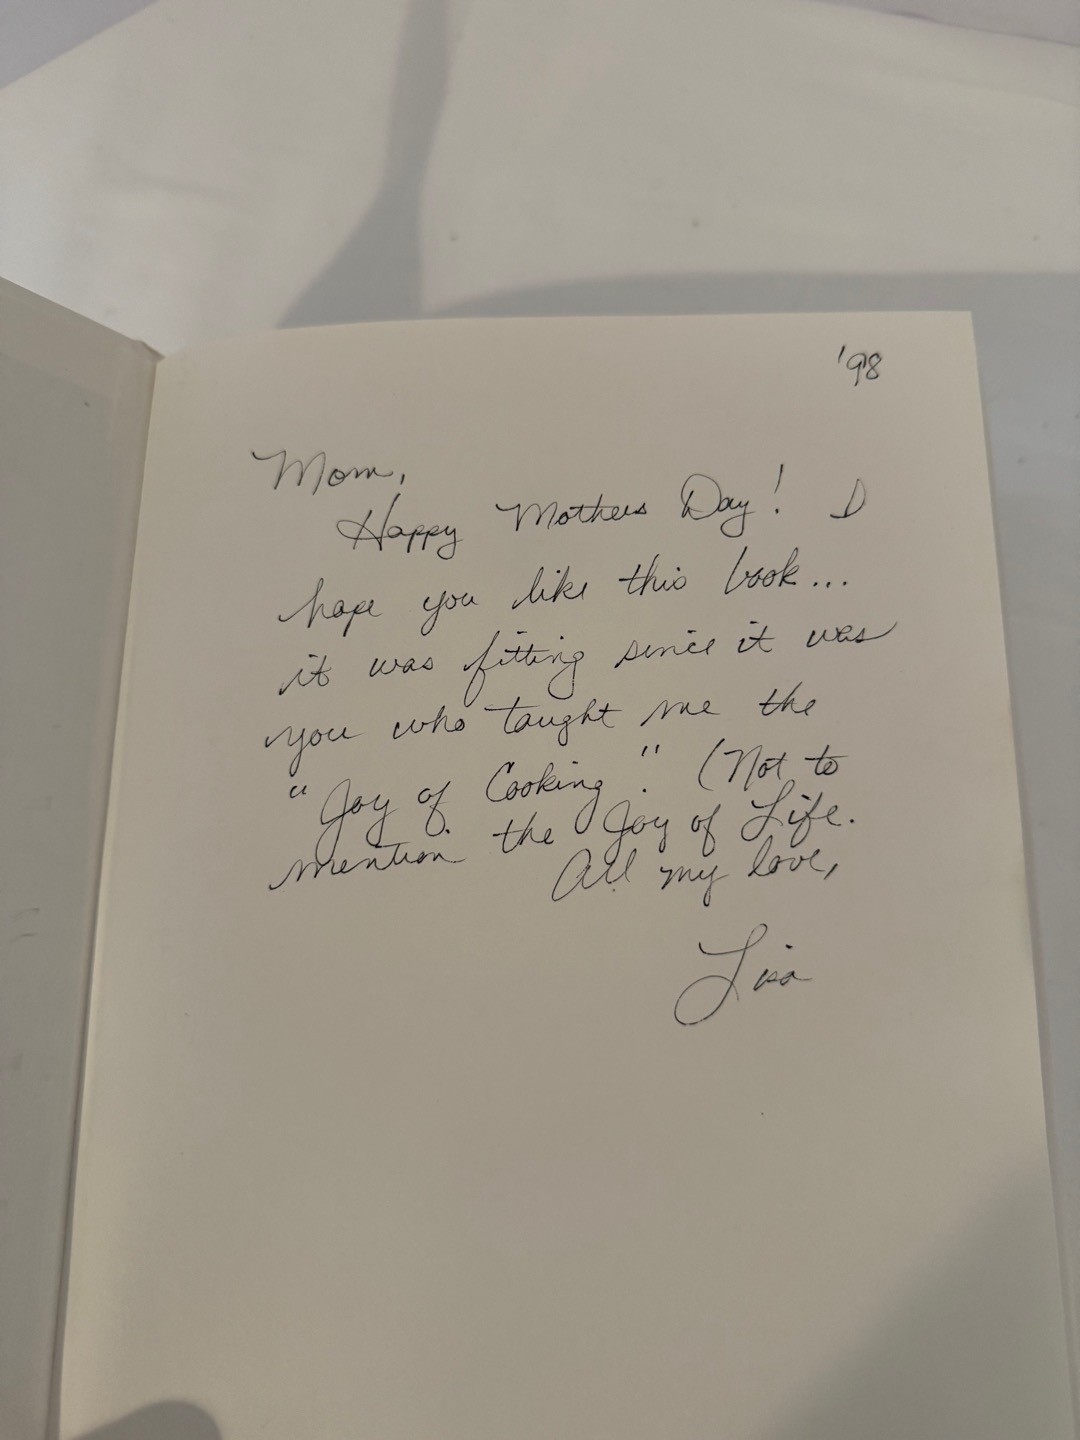 '98
Mom,
Happy Mothers Day! I
hope you like this book...
it was fitting since it was
you who taught me the
"Joy of Cooking." (Not to
mention the Joy of Life.
All my love,
Lisa